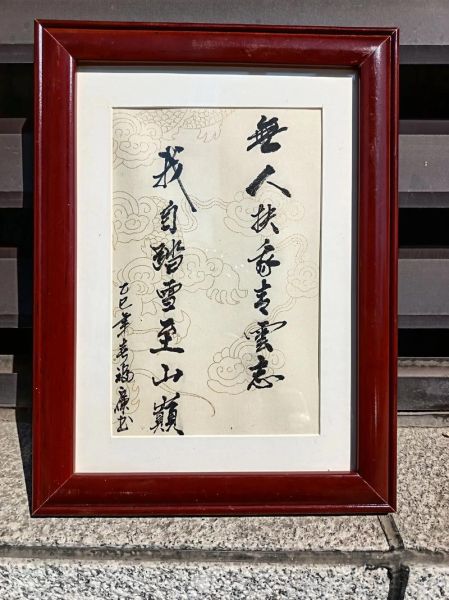 無人扶我青雲志
我自踏雪至山巔
乙巳年春福廣书